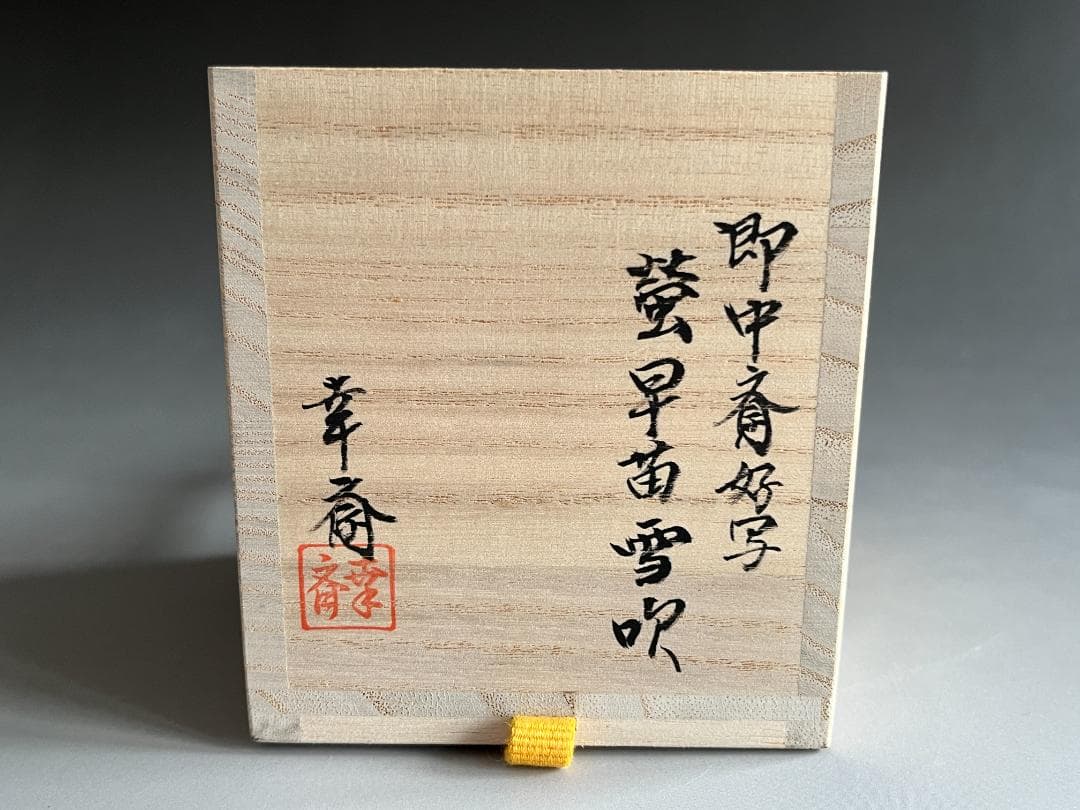 即中斎好写
蛍早苗雪吹
幸斎
幸斎